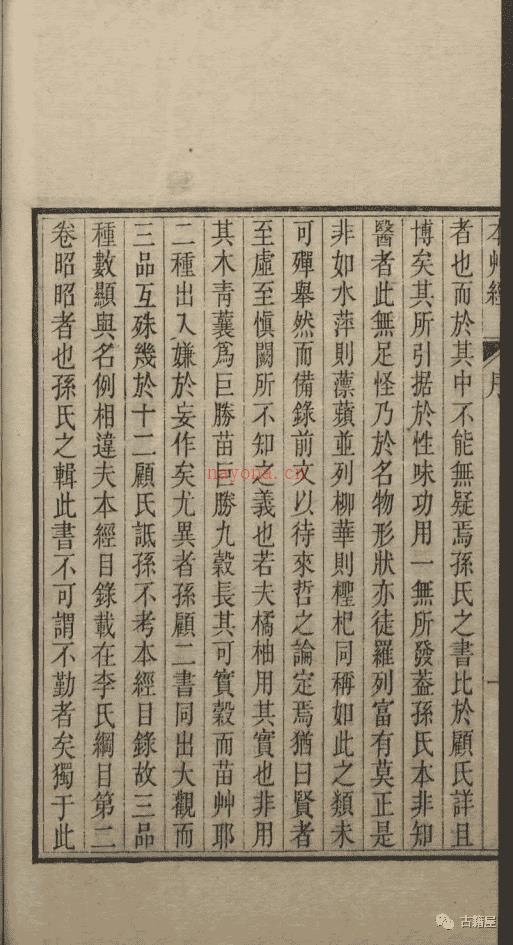 本艸經 序 一
者也而於其中不能無疑焉孫氏之書比於顧氏詳且
博矣其所引据於性味功用一無所發葢孫氏本非知
醫者此無足怪乃於名物形狀亦徒羅列富有莫正是
非如水萍則薸蘋並列柳華則檉杞同稱如此之類未
可殫舉然而備錄前文以待來哲之論定焉猶曰賢者
至虛至愼闕所不知之義也若夫橘柚用其實也非用
其木靑蘘爲巨勝苗巨勝九穀長其可實穀而苗艸耶
二種出入嫌於妄作矣尤異者孫顧二書同出大觀而
三品互殊幾於十二顧氏詆孫不考本經目錄故三品
種數顯與名例相違夫本經目錄載在李氏綱目第二
卷昭昭者也孫氏之輯此書不可謂不勤者矣獨于此
nayona.cn
古籍屋